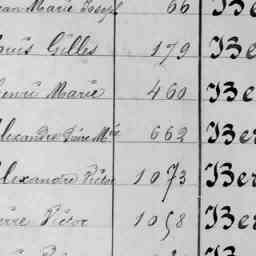 ean Marie Joseph 66 Be
ouis Gilles 179 Ber
enri Marie 460 Be
lexandre Pierre Mie 662 Ber
lexandre Victor 1073 Ber
ierre Victor 1058 Ber